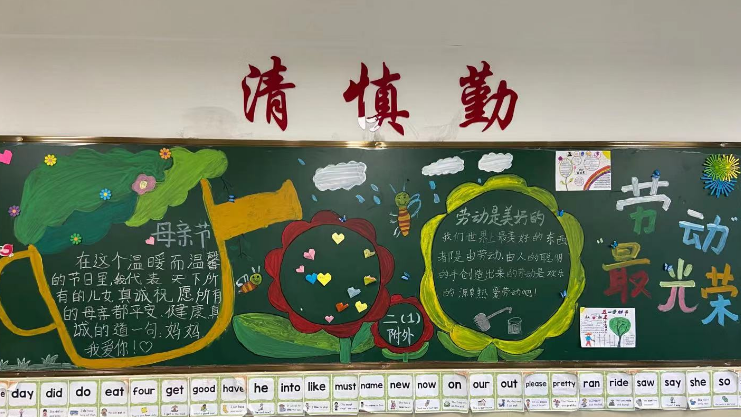 清慎勤
母亲节
在这个温暖而温馨
的节日里,我代表天下所
有的儿女真诚祝愿所有
的母亲都平安、健康,真
诚的道一句.妈妈
我爱你!
二(1)
附外
劳动是美好的
我们世界上最美好的东西
都是由劳动,由人的聪明
的手创造出来的劳动是欢乐
的源泉热爱劳动吧!
"劳动
最光荣
day did do eat four get good have he into like must name new now on our out please pretty ran ride saw say she so